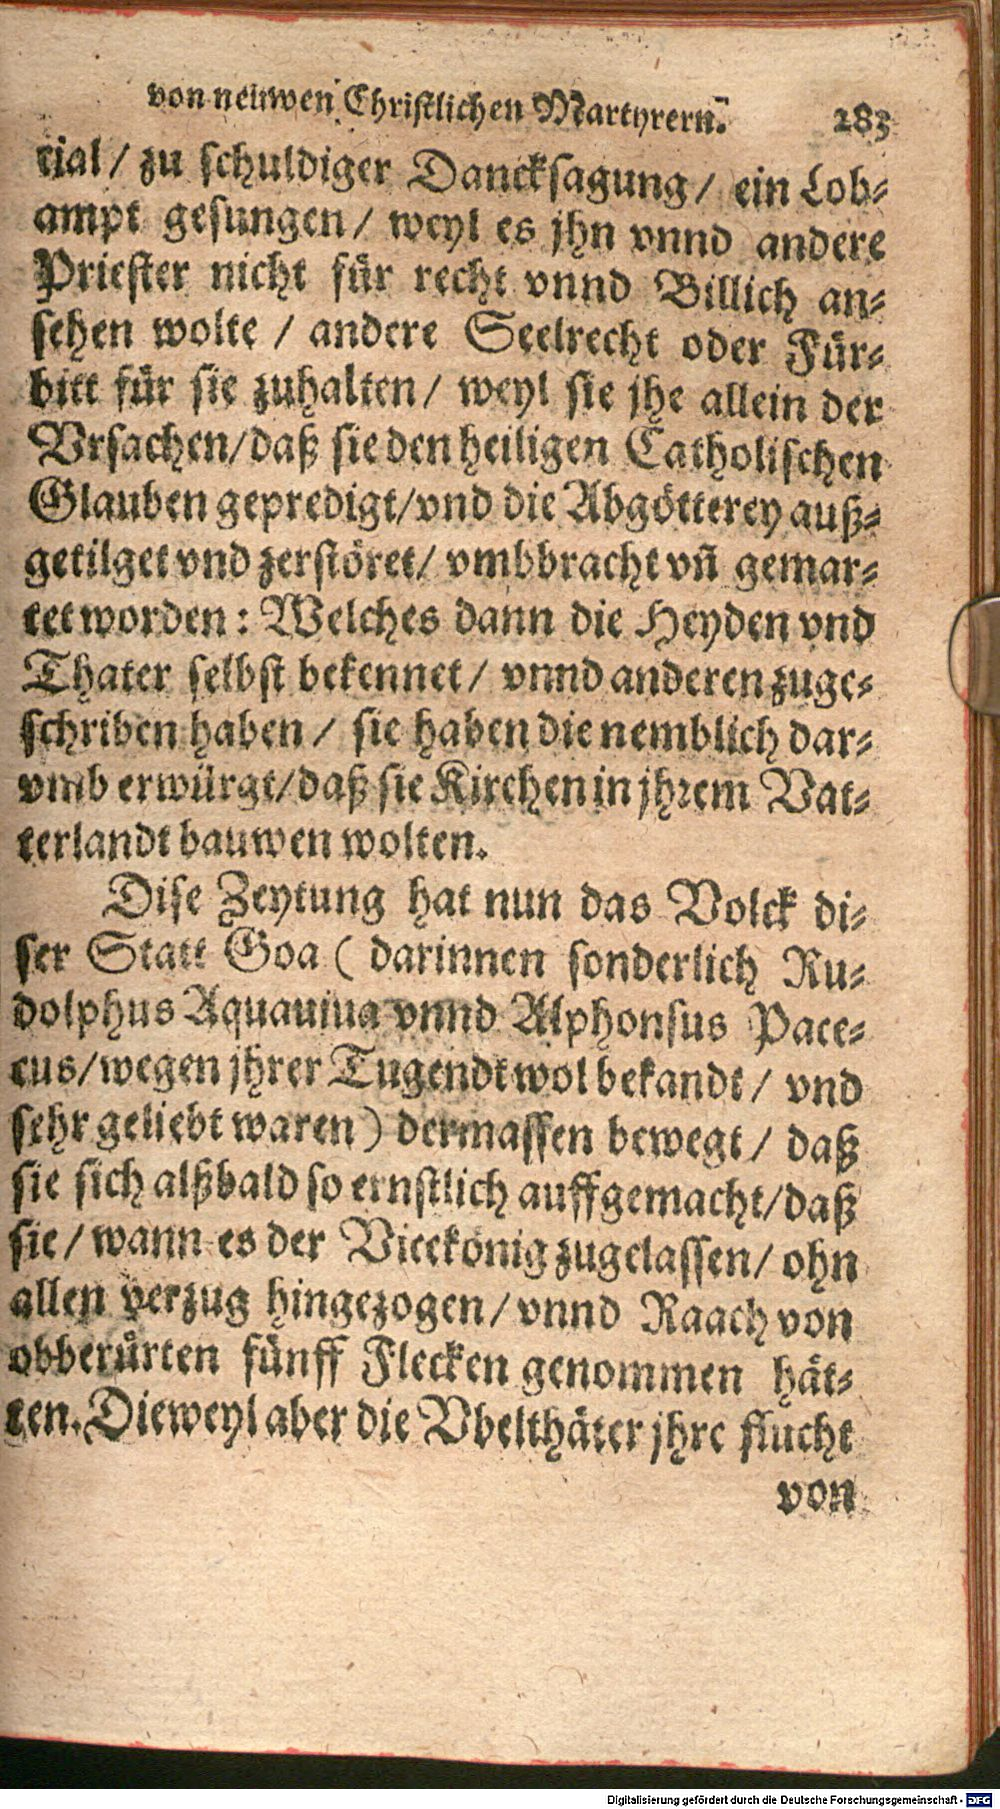 von neuwen Christlichen Martyrern. 283
cial / zu schuldiger Dancksagung / ein Lob-
ampt gesungen / weyl es jhn vnnd andere
Priester nicht für recht vnnd Billich an-
sehen wolte / andere Seelrecht oder Für-
bitt für sie zuhalten / weyl sie jhe allein der
Vrsachen/daß sie den heiligen Catholischen
Glauben gepredigt/vnd die Abgötterey auß-
getilget vnd zerstöret/ vmbbracht vñ gemar-
tet worden: Welches dann die Heyden vnd
Thater selbst bekennet / vnnd anderen zuge-
schriben haben / sie haben die nemblich dar-
vmb erwürgt/daß sie Kirchen in jhrem Vat-
terlandt bauwen wolten.
Dise Zeytung hat nun das Volck di-
ser Statt Goa ( darinnen sonderlich Ru-
dolphus Aquauiua vnnd Alphonsus Pace-
cus/wegen jhrer Tugendt wol bekandt / vnd
sehr geliebt waren ) dermassen bewegt / daß
sie sich alßbald so ernstlich auffgemacht/daß
sie / wann es der Vicekönig zugelassen/ ohn
allen verzug hingezogen / vnnd Raach von
obberürten fünff Flecken genommen hät-
ten. Dieweyl aber die Vbelthäter jhre flucht
von
Digitalisierung gefördert durch die Deutsche Forschungsgemeinschaft - DFG